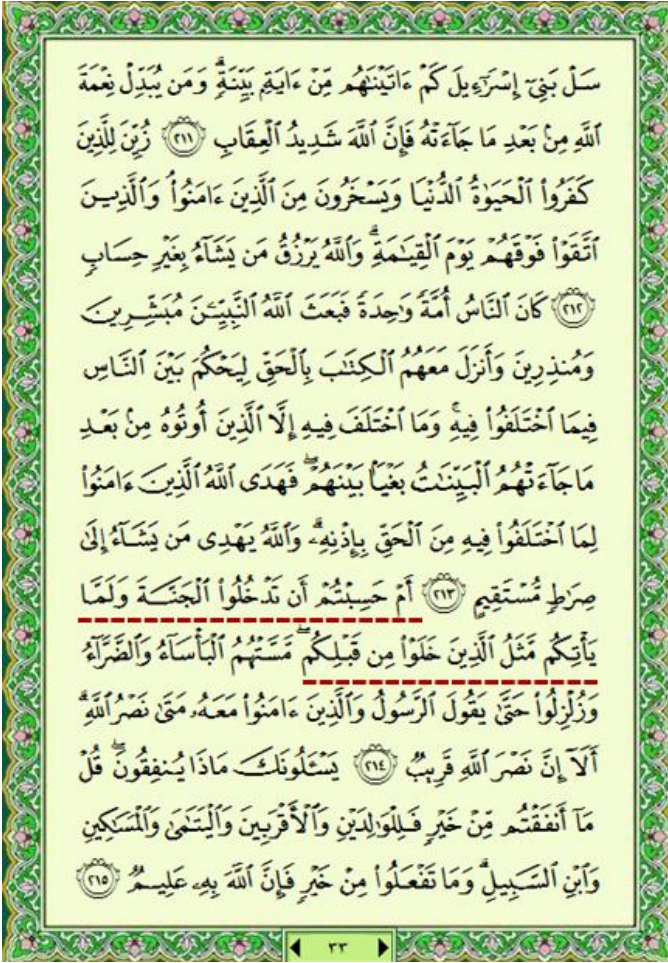 سَلْ بَنِىٓ إِسْرَٰٓءِيلَ كَمْ ءَاتَيْنَٰهُم مِّنْ ءَايَةٍۭ بَيِّنَةٍۢ ۗ وَمَن يُبَدِّلْ نِعْمَةَ
ٱللَّهِ مِنۢ بَعْدِ مَا جَآءَتْهُ فَإِنَّ ٱللَّهَ شَدِيدُ ٱلْعِقَابِ ﴿٢١١﴾ زُيِّنَ لِلَّذِينَ
كَفَرُوا۟ ٱلْحَيَوٰةُ ٱلدُّنْيَا وَيَسْخَرُونَ مِنَ ٱلَّذِينَ ءَامَنُوا۟ ۘ وَٱلَّذِينَ
ٱتَّقَوْا۟ فَوْقَهُمْ يَوْمَ ٱلْقِيَٰمَةِ ۗ وَٱللَّهُ يَرْزُقُ مَن يَشَآءُ بِغَيْرِ حِسَابٍۢ
﴿٢١٢﴾ كَانَ ٱلنَّاسُ أُمَّةًۭ وَٰحِدَةًۭ فَبَعَثَ ٱللَّهُ ٱلنَّبِيِّـۧنَ مُبَشِّرِينَ
وَمُنذِرِينَ وَأَنزَلَ مَعَهُمُ ٱلْكِتَٰبَ بِٱلْحَقِّ لِيَحْكُمَ بَيْنَ ٱلنَّاسِ
فِيمَا ٱخْتَلَفُوا۟ فِيهِ ۚ وَمَا ٱخْتَلَفَ فِيهِ إِلَّا ٱلَّذِينَ أُوتُوهُ مِنۢ بَعْدِ
مَا جَآءَتْهُمُ ٱلْبَيِّنَٰتُ بَغْيًۢا بَيْنَهُمْ ۖ فَهَدَى ٱللَّهُ ٱلَّذِينَ ءَامَنُوا۟
لِمَا ٱخْتَلَفُوا۟ فِيهِ مِنَ ٱلْحَقِّ بِإِذْنِهِۦ ۗ وَٱللَّهُ يَهْدِى مَن يَشَآءُ إِلَىٰ
صِرَٰطٍۢ مُّسْتَقِيمٍ ﴿٢١٣﴾ أَمْ حَسِبْتُمْ أَن تَدْخُلُوا۟ ٱلْجَنَّةَ وَلَمَّا
يَأْتِكُم مَّثَلُ ٱلَّذِينَ خَلَوْا۟ مِن قَبْلِكُم ۖ مَّسَّتْهُمُ ٱلْبَأْسَآءُ وَٱلضَّرَّآءُ
وَزُلْزِلُوا۟ حَتَّىٰ يَقُولَ ٱلرَّسُولُ وَٱلَّذِينَ ءَامَنُوا۟ مَعَهُۥ مَتَىٰ نَصْرُ ٱللَّهِ ۗ
أَلَآ إِنَّ نَصْرَ ٱللَّهِ قَرِيبٌۭ ﴿٢١٤﴾ يَسْـَٔلُونَكَ مَاذَا يُنفِقُونَ ۖ قُلْ
مَآ أَنفَقْتُم مِّنْ خَيْرٍۢ فَلِلْوَٰلِدَيْنِ وَٱلْأَقْرَبِينَ وَٱلْيَتَٰمَىٰ وَٱلْمَسَٰكِينِ
وَٱبْنِ ٱلسَّبِيلِ ۗ وَمَا تَفْعَلُوا۟ مِنْ خَيْرٍۢ فَإِنَّ ٱللَّهَ بِهِۦ عَلِيمٌۭ ﴿٢١٥﴾
٣٣